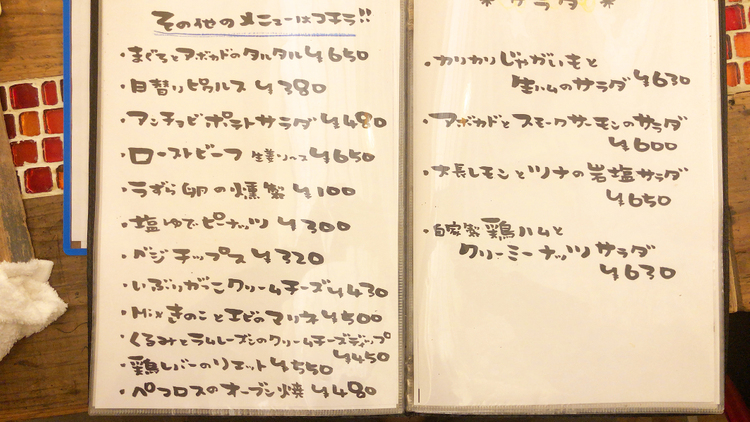 その他のメニューはコチラ!!
・まぐろとアボカドのタルタル ¥650
・日替りピクルス ¥380
・アンチョビポテトサラダ ¥480
・ローストビーフ 生姜ソース ¥650
・うずら卵の燻製 ¥100
・塩ゆでピーナッツ ¥300
・ベジチップス ¥320
・いぶりがっこクリームチーズ ¥430
・Mixきのことエビのマリネ ¥500
・くるみとラムレーズンのクリームチーズディップ
¥450
・鶏レバーのリエット ¥550
・ペコロスのオーブン焼 ¥480
*サラダ*
・カリカリじゃがいもと
生ハムのサラダ ¥630
・アボカドとスモークサーモンのサラダ
¥600
・大長レモンとツナの岩塩サラダ
¥650
・自家製鶏ハムと
クリーミーナッツサラダ
¥630